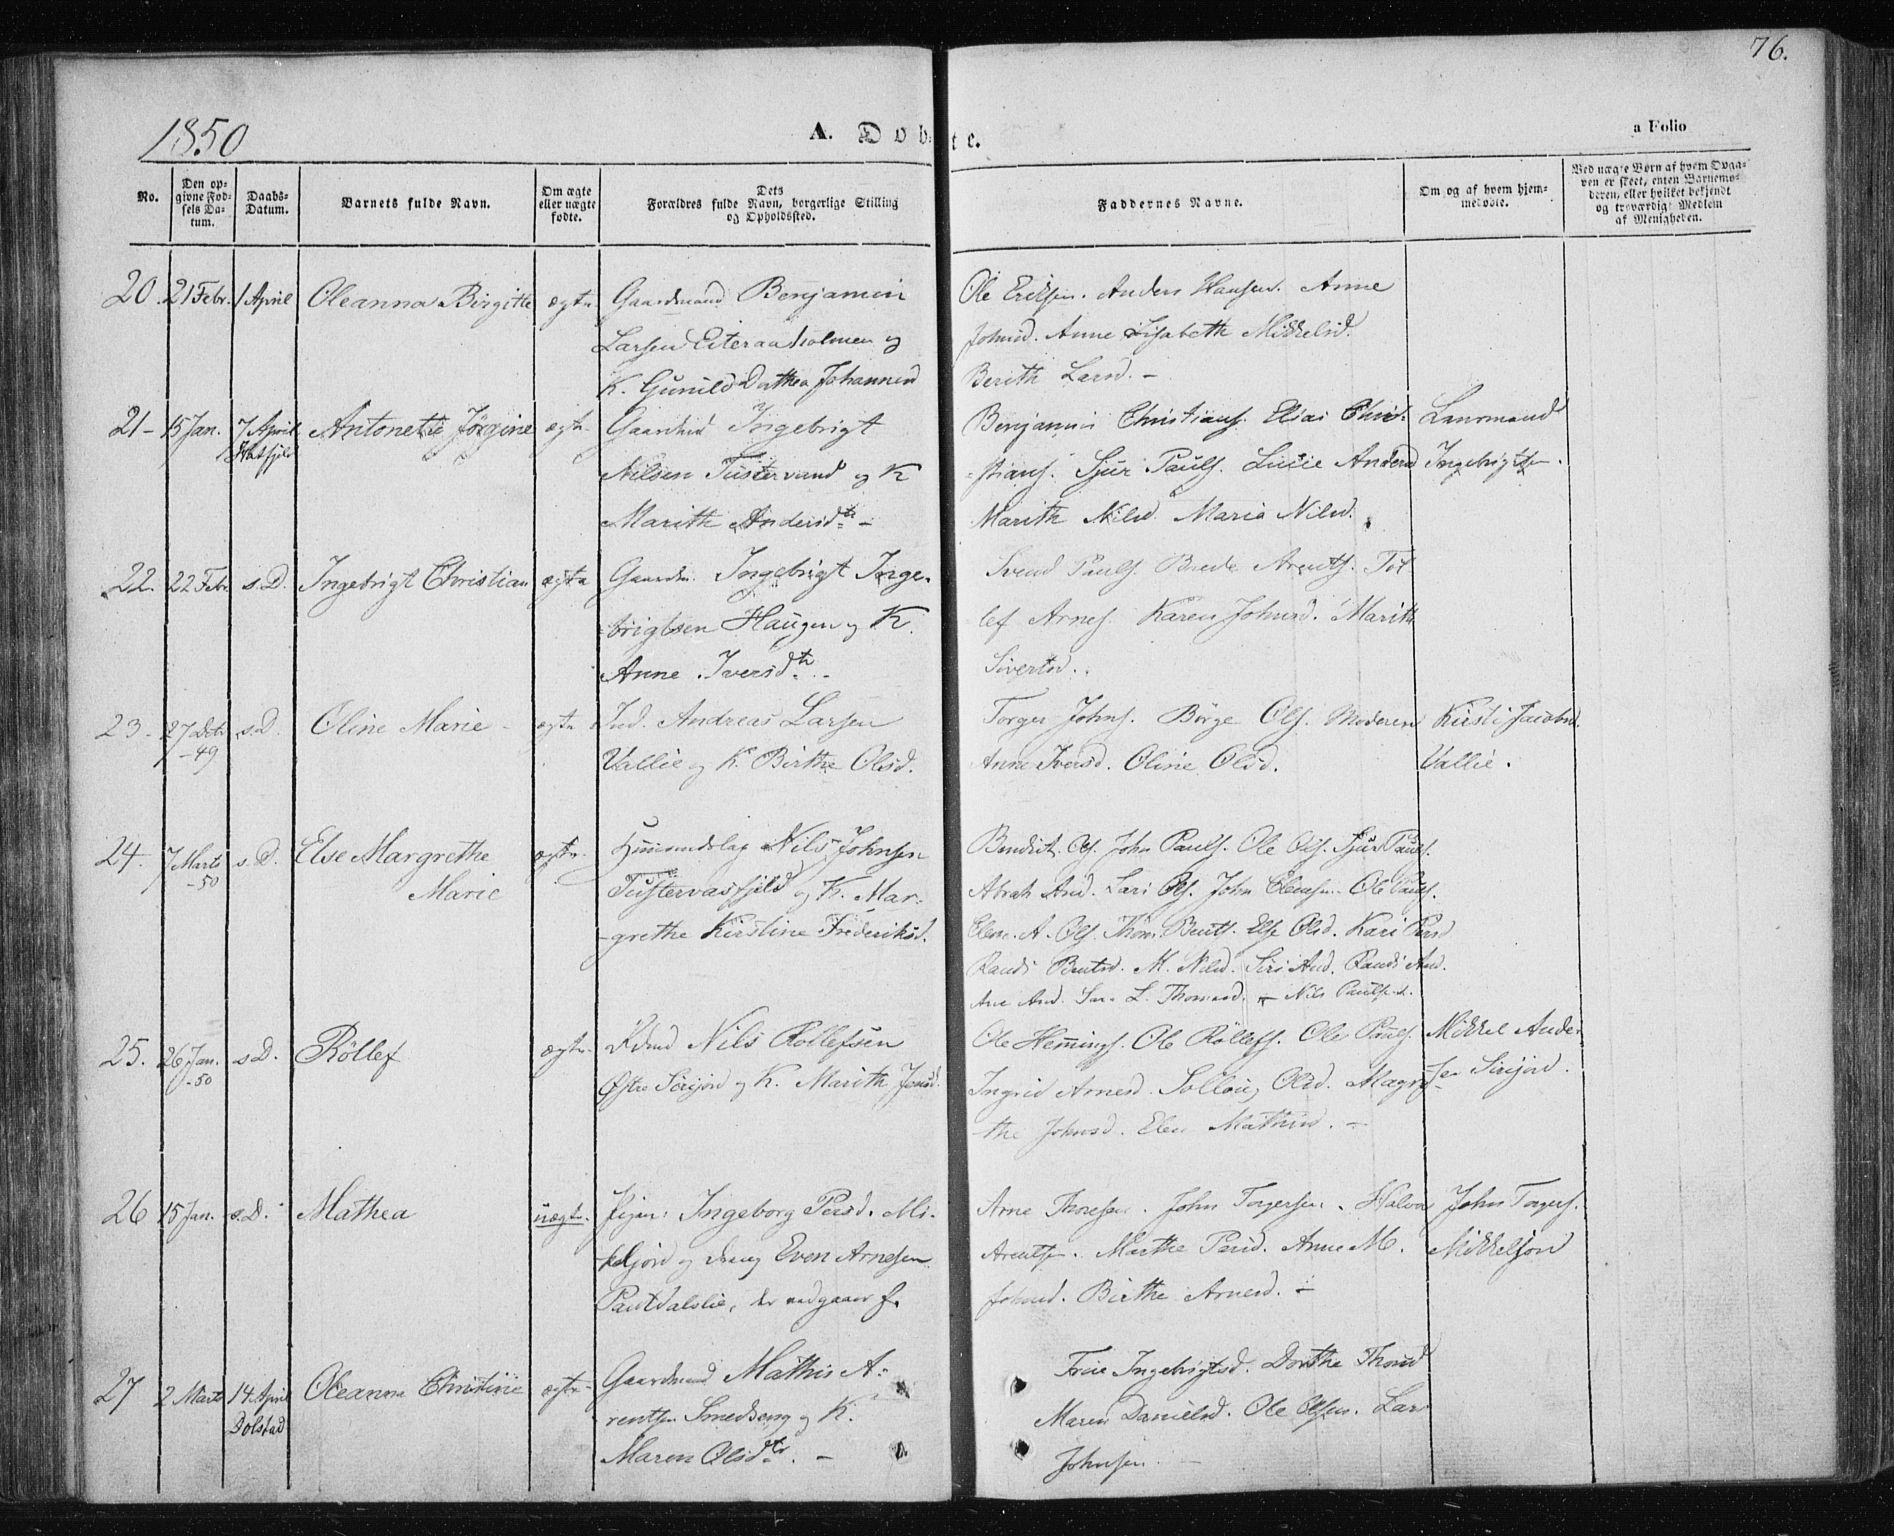 76.
1850
A. Døbte.
a Folio
No.
Den opgivne Fødsels Datum.
Daabs-Datum.
Barnets fulde Navn.
Om ægte eller uægte fødte.
Dets Forældres fulde Navn, borgerlige Stilling og Opholdssted.
Faddernes Navne.
Om og af hvem hjemmedøbt.
Ved uægte Børn af hvem Opgaven er skeet, enten Barnemoderen, eller hvilket bekjendt og troværdigt Medlem af Menigheden.
20. 21 Febr. 1 April Oleanna Birgitte ægte Gaardmand Benjamin
Larsen Eiteraaholmen og
K. Gunild Dorthea Johannesd
Ole Eriksen. Anders Hansen. Anne
Johnsd. Anne Lisabeth Mikkelsd.
Berith Larsd. –
21 – 15 Jan. 7 April Antonette Jørgine ægte Gaardmd Ingebrigt
Hatfjeld
Nilsen Tustervand og K
Marith Andersdtr –
Benjamin Christians. Elias Chri-
stians. Sjur Pauls. Lucie Andersd
Marith Nilsd. Maria Nilsd.
Lensmand
Ingebrigtsen.
22. 22 Febr. s.D. Ingebrigt Christian ægte Gaardm. Ingebrigt Inge-
brigtsen Haugen og K.
Anne Iversdtr.
Svend Pauls. Arents. Tol
lef Arnes. Karen Johnsd. Marith
Sivertsd.
23 – 27 Dcbr s.D. Oline Marie – ægte Ind. Andreas Larsen
– 49
Vallie og K. Birthe Olsd.
Torger Johns. Børge Ols. Moderen
Anne Iversd. Oline Olsd.
Kirsti Jacobsd.
Vallie.
24. 7 Marts s.D. Else Margrethe ægte Nils Johnsen
– 50 Marie
Tustervasfjeld og K. Mar-
grethe Kirstine Frederiksd.
Bendict Ols. John Pauls. Ole Ols. Sjur Pauls.
Abrah And. Lars Ols. John Clemsen. Ole Pauls.
A. Ols. Thom. Bentt. Else Olsd. Kari Persd
Randi Bentsd. M. Nilsd. Siri And. Randi And.
Ane And. L. Thomasd. Nils Pauls
25. 26 Jan. s.D. Røllef ægte Nils Rollefsen
– 50
Østre Sirijord og K. Marith Jonsd.
Ole Hemings. Ole Røllefs. Ole Pauls.
Ingrid Arnesd. Solløig Olsd. Magre
the Johnsd. Elen Mathisd. –
Mikkel Ander
sen Sirijord.
26 15 Jan. s.D. Mathea uægte. Pigen: Ingeborg Persd. Mi-
keljord og dreng Even Arnesen
Pantdalslie, der vedgaaer f.
Arne Thoresen. John Torgersen. Halvor
Arentsen. Marthe Persd. Anne M.
Johnsd. Birthe Arnesd. –
John Torgers.
Mikkeljord
27 2 Marts 14 April Oleanna Christine ægte – Gaardmand Mathis A-
Dolstad
rentsen Smedseng og K.
Maren Olsdtr. –
Ingebrigtsd. Dorthe Thorsd
Maren Danielsd. Ole Olsen. Lars
Johnsen.